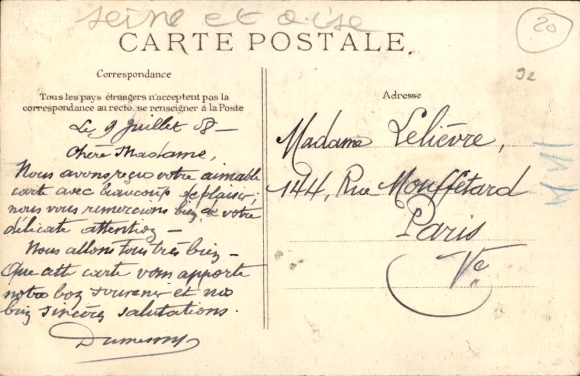 Seine et Oise
20
CARTE POSTALE.
92
Correspondance
Tous les pays étrangers n'acceptent pas la
correspondance au recto, se renseigner à la Poste
Adresse
Le 9 Juillet 08 –
Chère Madame,
Nous avons reçu votre aimable
carte avec beaucoup de plaisir,
nous vous remercions bien de votre
délicate attention –
Nous allons tous très bien –
Que cette carte vous apporte
notre bon souvenir et nos
bien sincères salutations.
Dumesny
Madame Lelièvre,
144, Rue Mouffetard
Paris
Ve